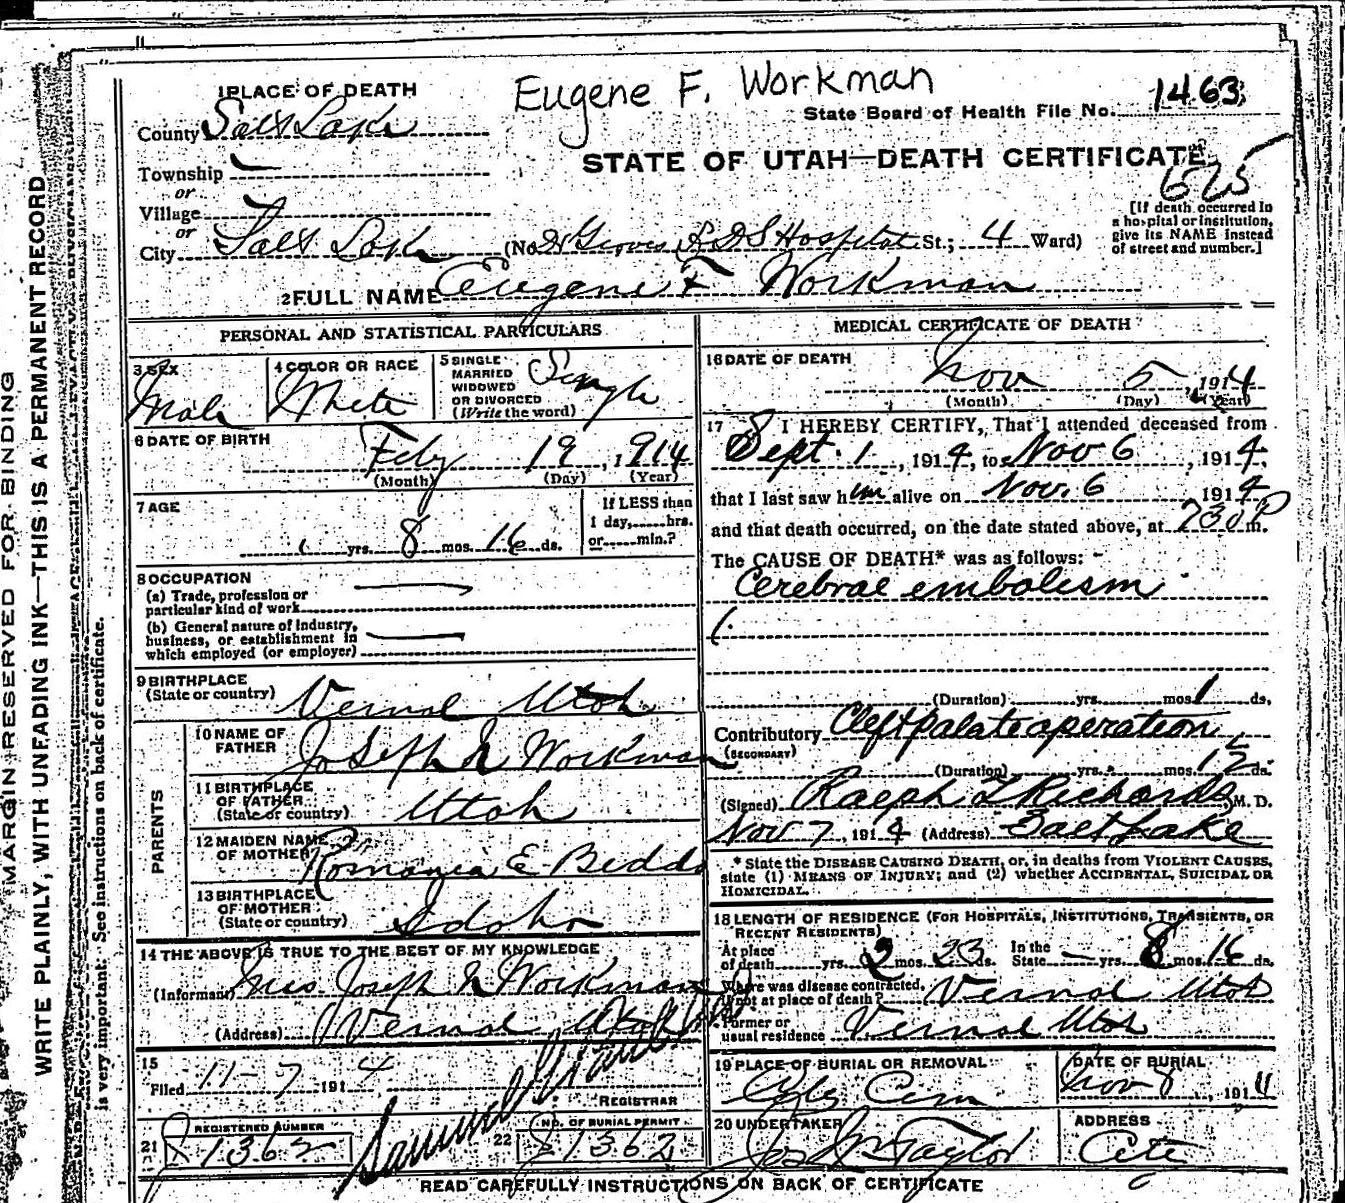 Eugene F. Workman
1 PLACE OF DEATH
State Board of Health File No. 1463
County Salt Lake
STATE OF UTAH—DEATH CERTIFICATE
Township —
625
or
Village
or
City Salt Lake (No Dr Groves L.D.S Hospital St.; 4 Ward)
[If death occurred in
a hospital or institution,
give its NAME instead
of street and number.]
2 FULL NAME Eugene F Workman
PERSONAL AND STATISTICAL PARTICULARS
3 SEX Male
4 COLOR OR RACE White
5 SINGLE
MARRIED
WIDOWED
OR DIVORCED
(Write the word) Single
6 DATE OF BIRTH
Feby 19, 1914
(Month) (Day) (Year)
7 AGE
yrs. 8 mos. 16 ds.
If LESS than
1 day, hrs.
or min.?
8 OCCUPATION
(a) Trade, profession or
particular kind of work —
(b) General nature of Industry,
business, or establishment in
which employed (or employer) —
9 BIRTHPLACE
(State or country) Vernal Utah
PARENTS
10 NAME OF
FATHER Joseph N Workman
11 BIRTHPLACE
OF FATHER
(State or country) Utah
12 MAIDEN NAME
OF MOTHER Romania E Bedd
13 BIRTHPLACE
OF MOTHER
(State or country) Idaho
14 THE ABOVE IS TRUE TO THE BEST OF MY KNOWLEDGE
(Informant) Mrs Joseph N Workman
(Address) Vernal Utah
15
Filed 11-7 1914
REGISTRAR
21 REGISTERED NUMBER
J 1362
22 NO. OF BURIAL PERMIT
J 1362
MEDICAL CERTIFICATE OF DEATH
16 DATE OF DEATH
Nov 5, 1914
(Month) (Day) (Year)
17 I HEREBY CERTIFY, That I attended deceased from
Sept. 1, 1914, to Nov 6, 1914,
that I last saw him alive on Nov. 6 1914
and that death occurred, on the date stated above, at 730 P m.
The CAUSE OF DEATH* was as follows:
Cerebral embolism
(Duration) yrs. mos. 1 ds.
Contributory Cleft palate operation
(SECONDARY)
(Duration) yrs. mos. ds.
(Signed) Ralph T Richards M. D.
Nov 7, 1914 (Address) Salt Lake
* State the DISEASE CAUSING DEATH, or, in deaths from VIOLENT CAUSES,
state (1) MEANS OF INJURY; and (2) whether ACCIDENTAL, SUICIDAL OR
HOMICIDAL.
18 LENGTH OF RESIDENCE (FOR HOSPITALS, INSTITUTIONS, TRANSIENTS, OR
RECENT RESIDENTS)
At place
of death yrs. 2 mos. 23 ds.
In the
State — yrs. 8 mos. 16 ds.
Where was disease contracted,
if not at place of death? Vernal Utah
Former or
usual residence Vernal Utah
19 PLACE OF BURIAL OR REMOVAL
City Cem
DATE OF BURIAL
Nov 8, 1914
20 UNDERTAKER
Jos Wm Taylor
ADDRESS
City
READ CAREFULLY INSTRUCTIONS ON BACK OF CERTIFICATE
MARGIN RESERVED FOR BINDING
WRITE PLAINLY, WITH UNFADING INK—THIS IS A PERMANENT RECORD
is very important. See instructions on back of certificate.